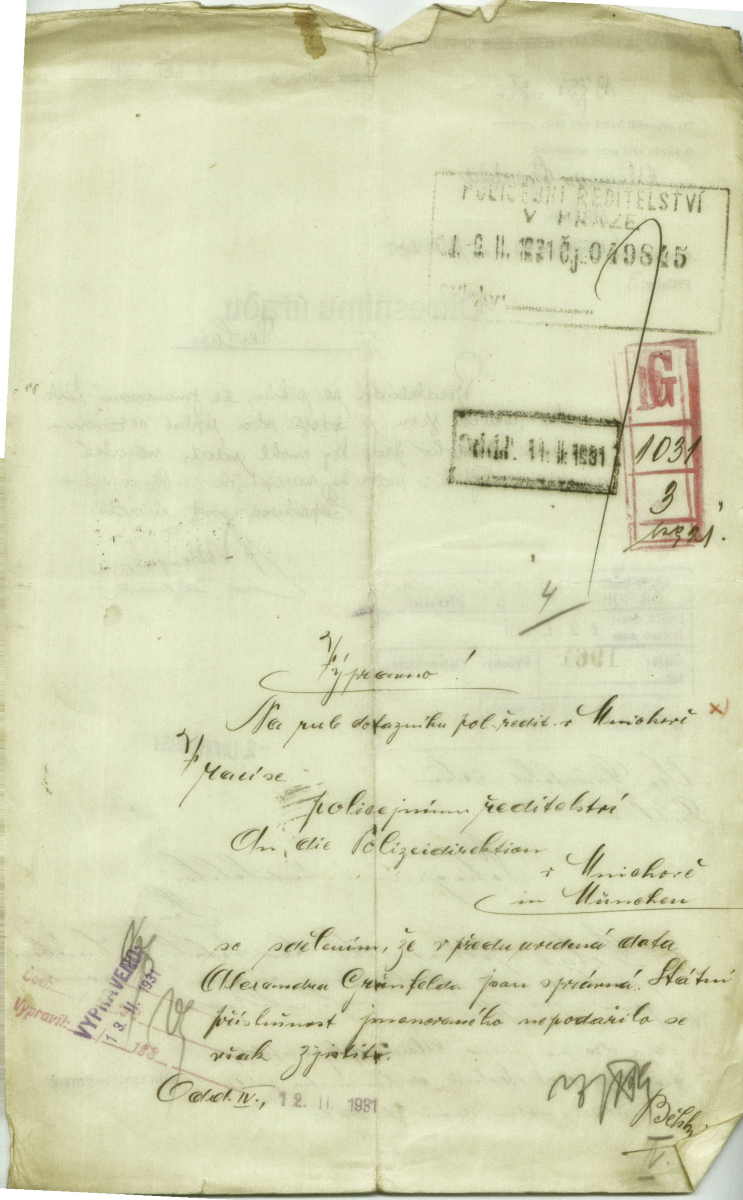 POLICEJNÍ ŘEDITELSTVÍ
V PRAZE
II. 1931 Č.j. 049845
G
1031
3
11. II. 1931
4
Výpravno!
Na rub dotazníku pol. ředit. v Mnichově x)
Vrací se
policejnímu ředitelství
An die Polizeidirektion
v Mnichově
in München
se sdělením, že v předu uvedená data
Alexandra Grünfelda jsou správná. Státní
příslušnost jmenovaného nepodařilo se
však zjistiti.
Odd. IV., 12. II. 1931
VYPRAVENO
13. II. 1931
Vypravit:
193
IV.